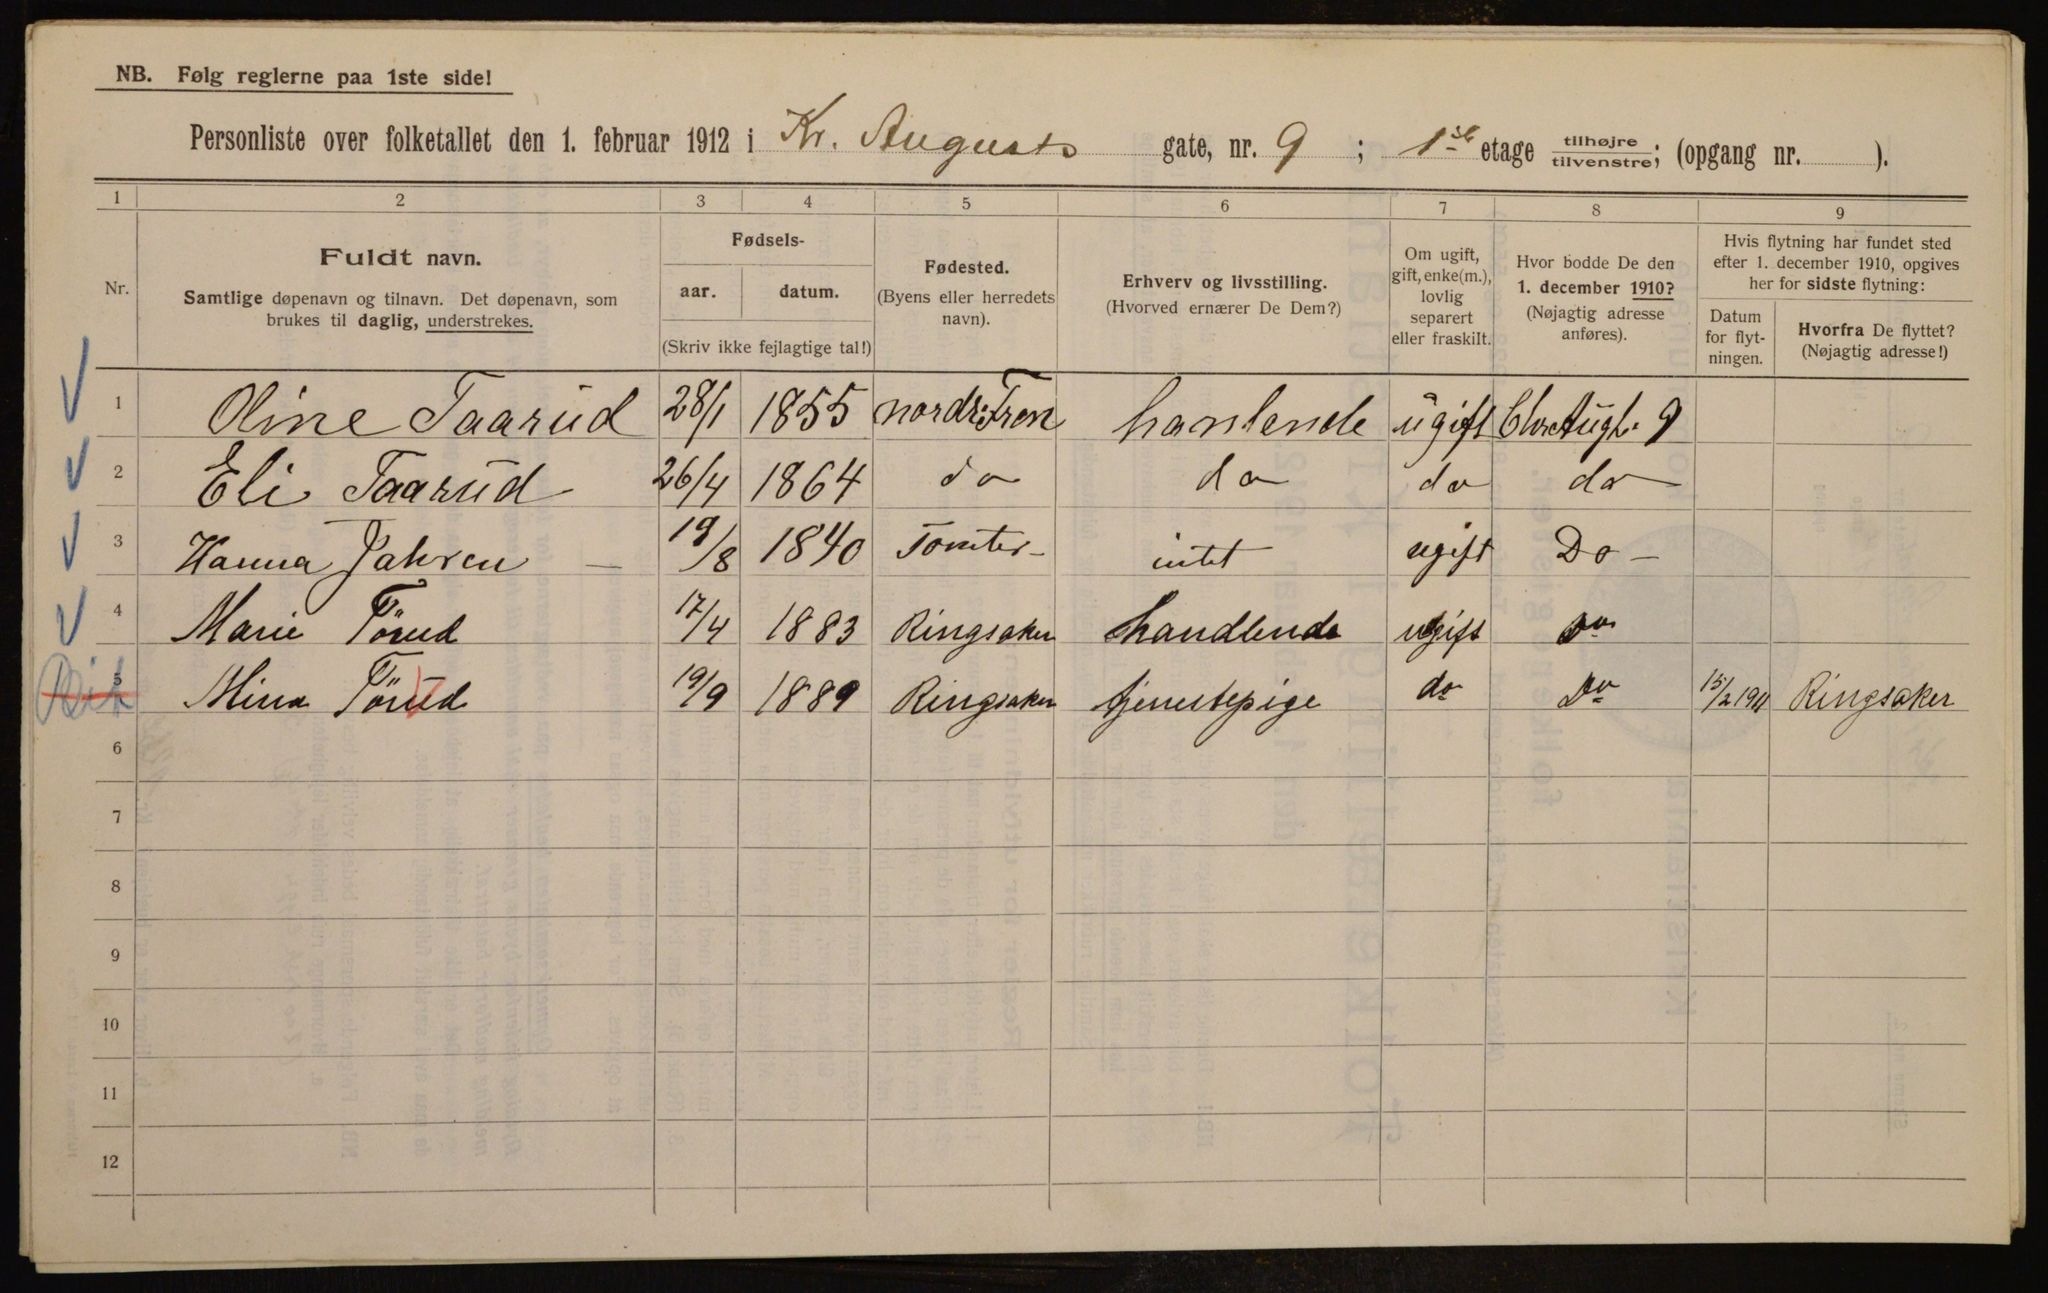 NB. Følg reglerne paa 1ste side!
Personliste over folketallet den 1. februar 1912 i Kr. Augusts gate, nr. 9 ; 1ste etage tilhøjre/tilvenstre; (opgang nr. ).
1 2 3 4 5 6 7 8 9
Nr.
Fuldt navn.
Samtlige døpenavn og tilnavn. Det døpenavn, som
brukes til daglig, understrekes.
Fødsels-
aar. datum.
(Skriv ikke fejlagtige tal!)
Fødested.
(Byens eller herredets
navn).
Erhverv og livsstilling.
(Hvorved ernærer De Dem?)
Om ugift,
gift, enke(m.),
lovlig
separert
eller fraskilt.
Hvor bodde De den
1. december 1910?
(Nøjagtig adresse
anføres).
Hvis flytning har fundet sted
efter 1. december 1910, opgives
her for sidste flytning:
Datum
for flyt-
ningen.
Hvorfra De flyttet?
(Nøjagtig adresse!)
1 Oline Taarud 28/1 1855 nordr: Fron hanlende ugift Chr Augt. 9
2 Eli Taarud 26/4 1864 do do do do
3 Hanna Jahren 19/8 1840 Tomter intet ugift Do
4 Marie Törud 17/4 1883 Ringsaker handlende ugift Do
5 Mina Törud 19/9 1889 Ringsaker tjenestepige do Do 15/2 1911 Ringsaker
6
7
8
9
10
11
12